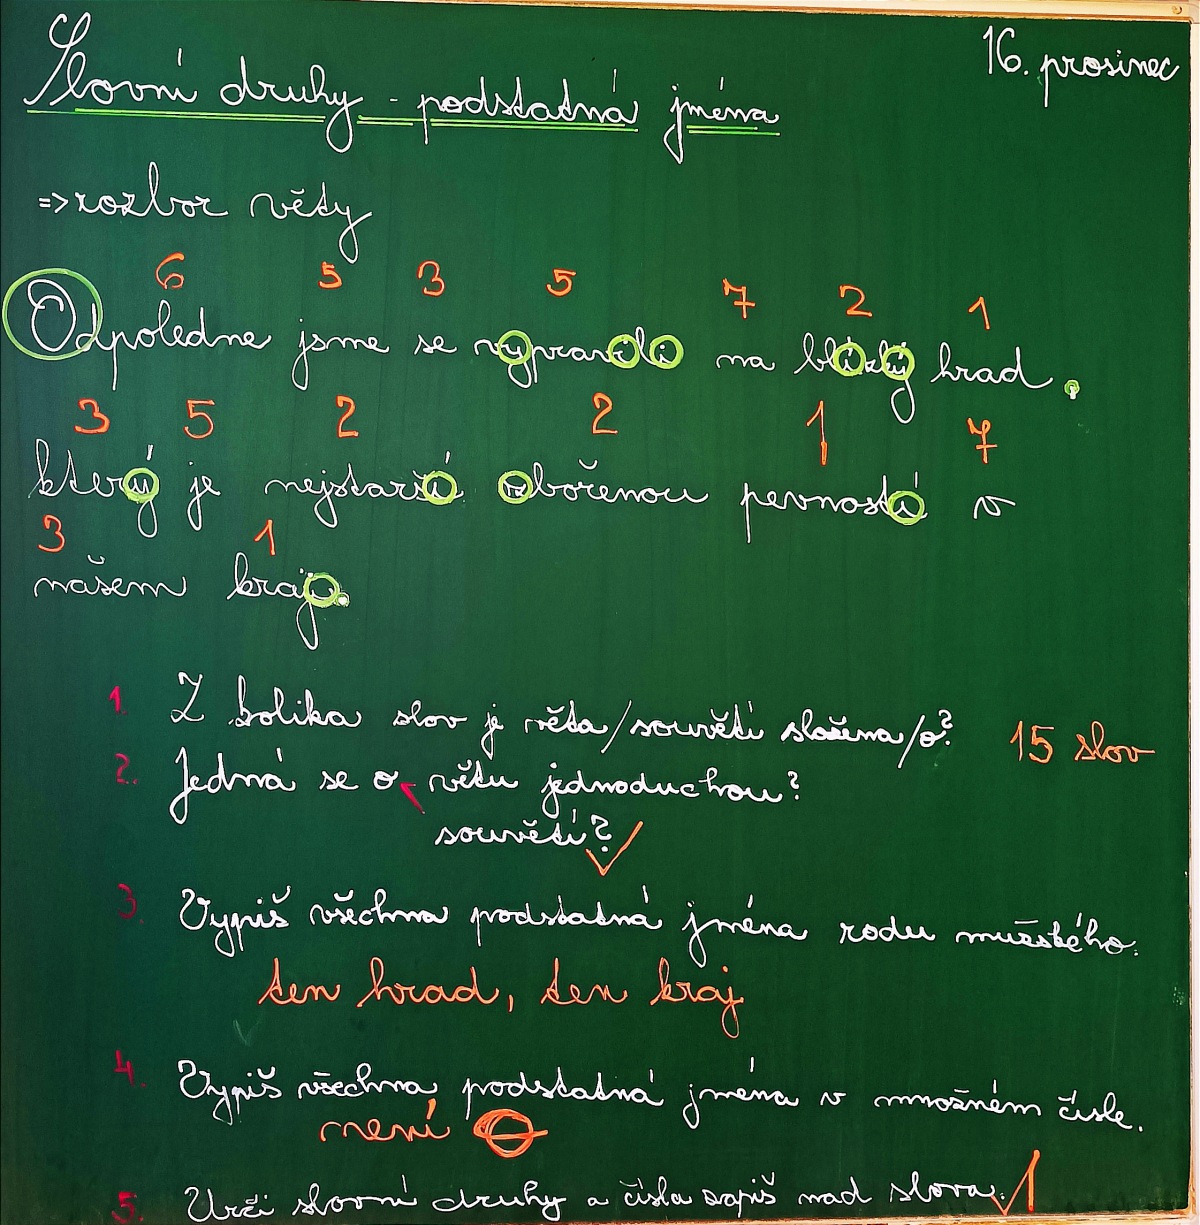 16. prosinec
Slovní druhy - podstatná jména
=> rozbor věty
6 5 3 5 7 2 1
Odpoledne jsme se vypravili na blízký hrad,
3 5 2 2 1 7
který je nejstarší zbořenou pevností v
3 1
našem kraji.
1. Z kolika slov je věta/souvětí složena/o? 15 slov
2. Jedná se o větu jednoduchou?
souvětí? ✓
3. Vypiš všechna podstatná jména rodu mužského.
ten hrad, ten kraj
4. Vypiš všechna podstatná jména v množném čísle.
není
5. Urči slovní druhy a čísla zapiš nad slova. ✓